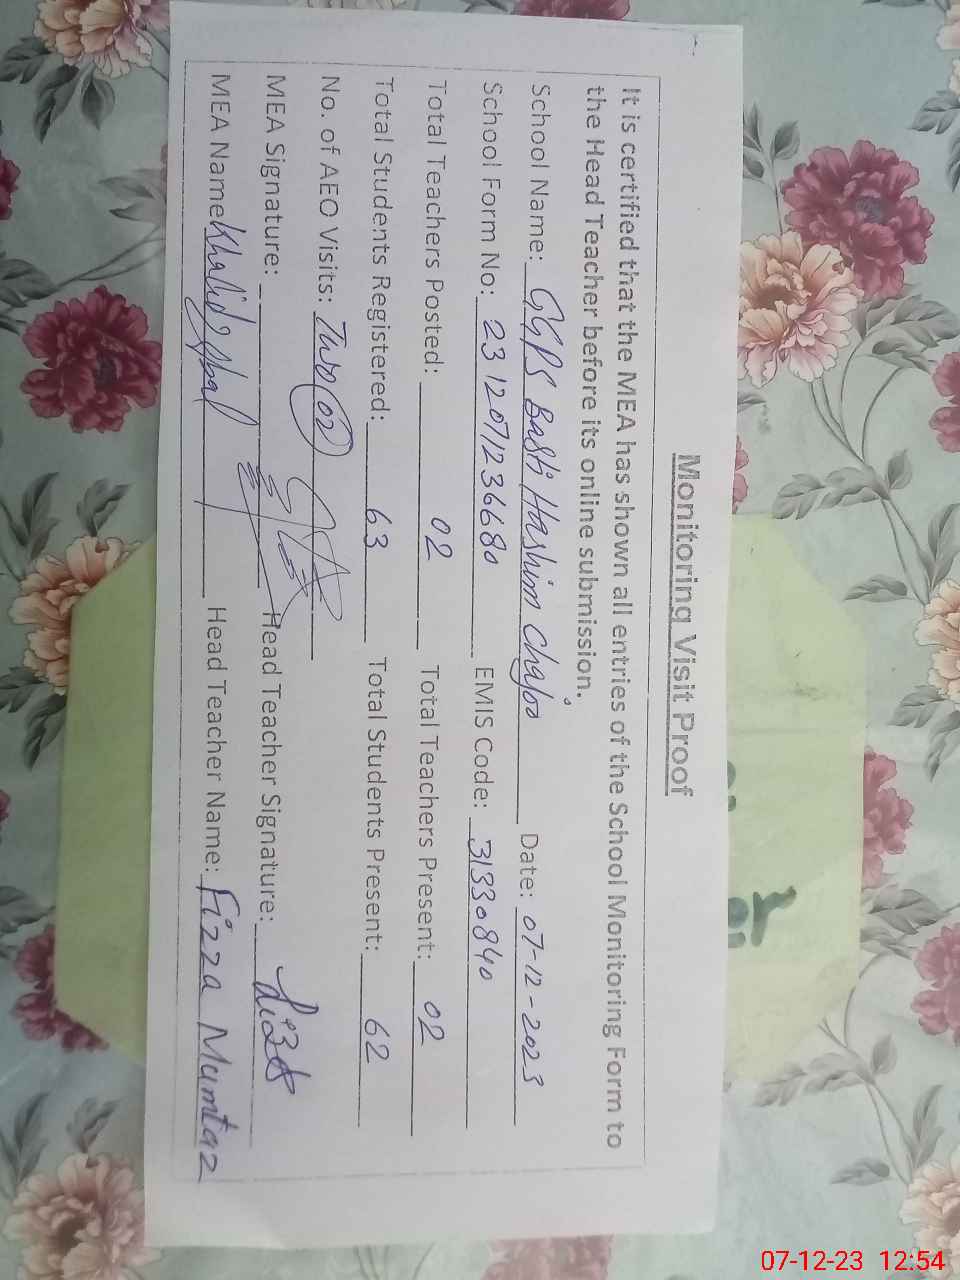 Monitoring Visit Proof
It is certified that the MEA has shown all entries of the School Monitoring Form to
the Head Teacher before its online submission.
School Name: GGPS Basti Hashim Chajoo Date: 07-12-2023
School Form No: 2312071236680 EMIS Code: 31330840
Total Teachers Posted: 02 Total Teachers Present: 02
Total Students Registered: 63 Total Students Present: 62
No. of AEO Visits: Two (02)
MEA Signature: Head Teacher Signature:
MEA Name Khalid Iqbal Head Teacher Name: Fizza Mumtaz
07-12-23 12:54